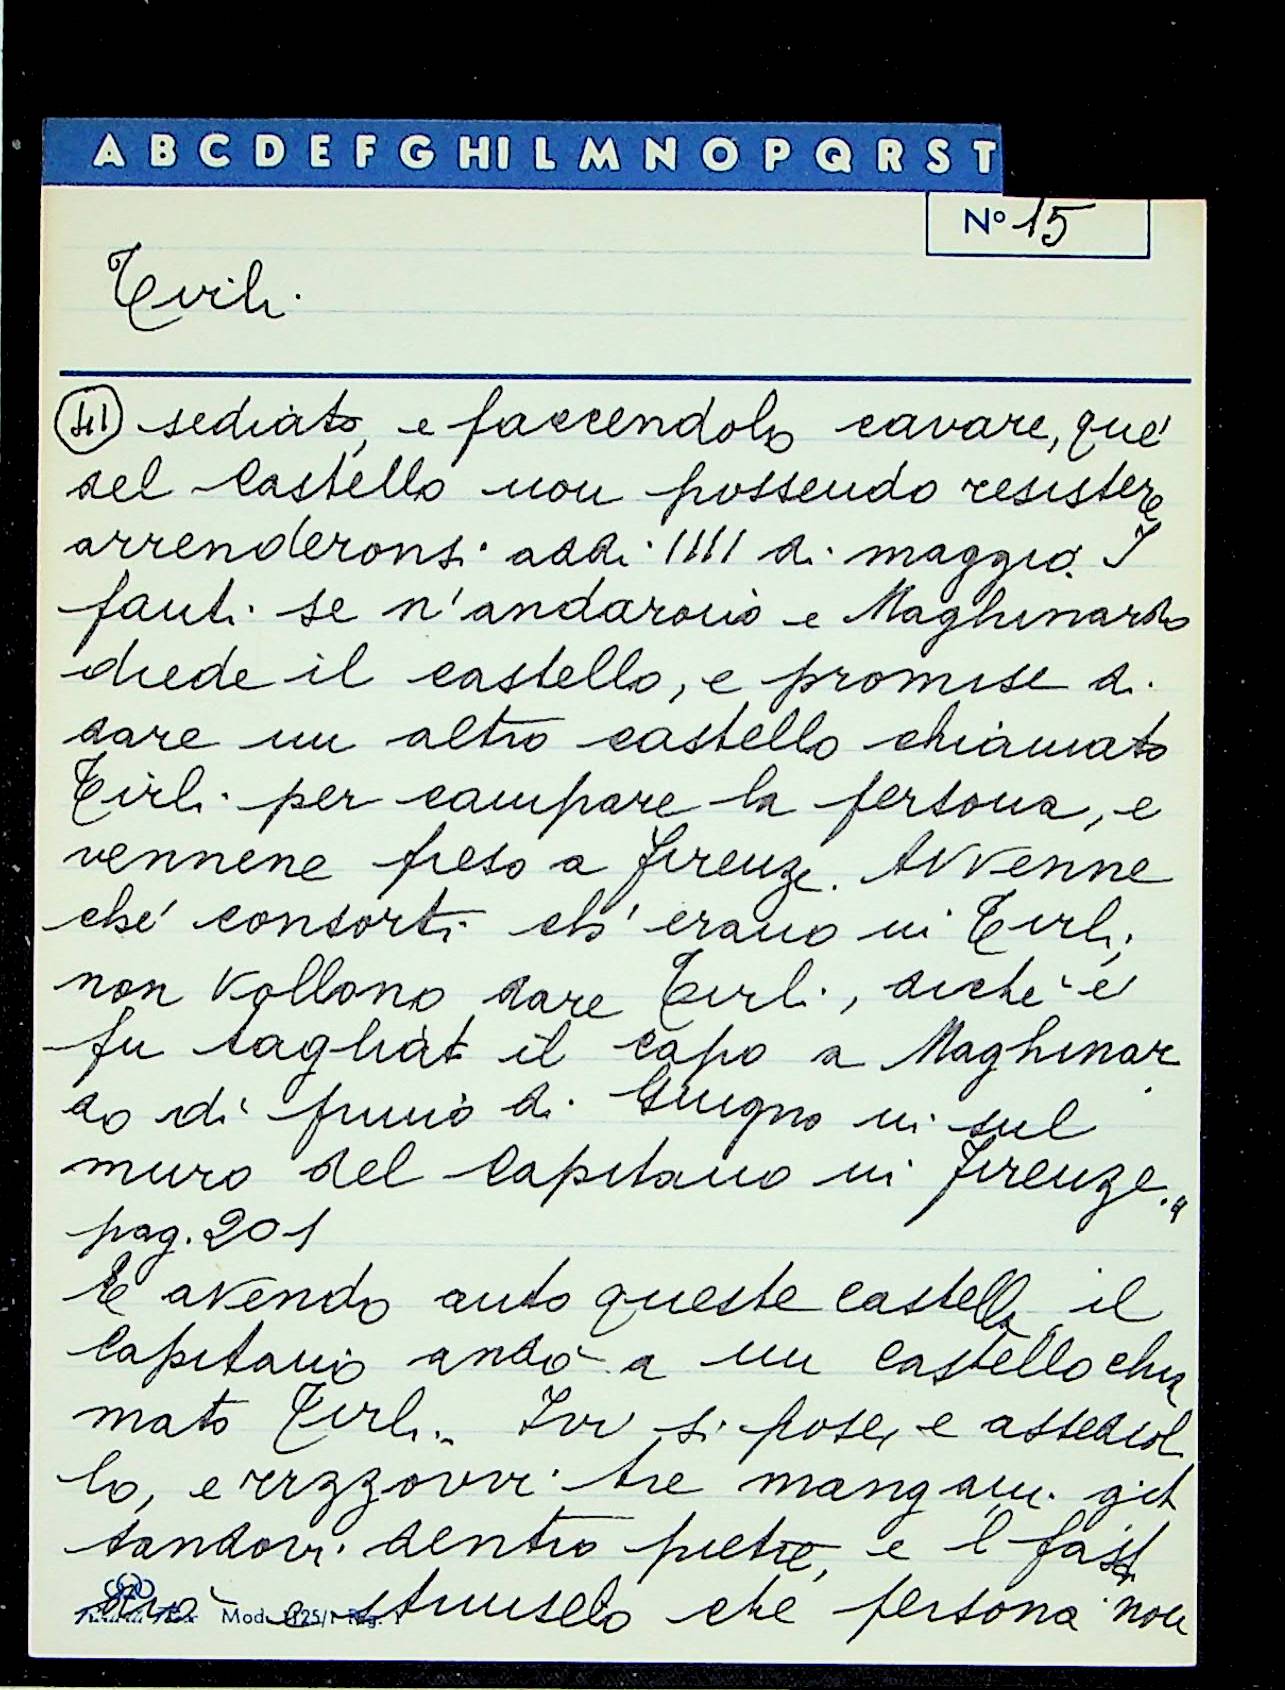 A B C D E F G HI L M N O P Q R S T
Nº 15
Tirli.
sediato, e faccendolo cavare, que'
del Castello non possendo resistere
arrenderonsi addì IIII di maggio. I
fanti se n'andarono e Maghinardo
diede il castello, e promise di
dare un altro castello chiamato
Tirli per campare la persona, e
vennene preso a Firenze. Avvenne
che' consorti ch' erano in Tirli,
non vollono dare Tirli, dichè e'
fu tagliato il capo a Maghinar
do dì primo di Giugno in sul
muro del Capitano in Firenze."
pag. 201
E avendo auto queste castella il
Capitano andò a un castello chia
mato Tirli. Ivi si pose, e assediol
lo, e rizzovvi tre mangani git
tandovi dentro pietre, e l
e strinselo che persona non
Mod. 1125/1 Rig. 1